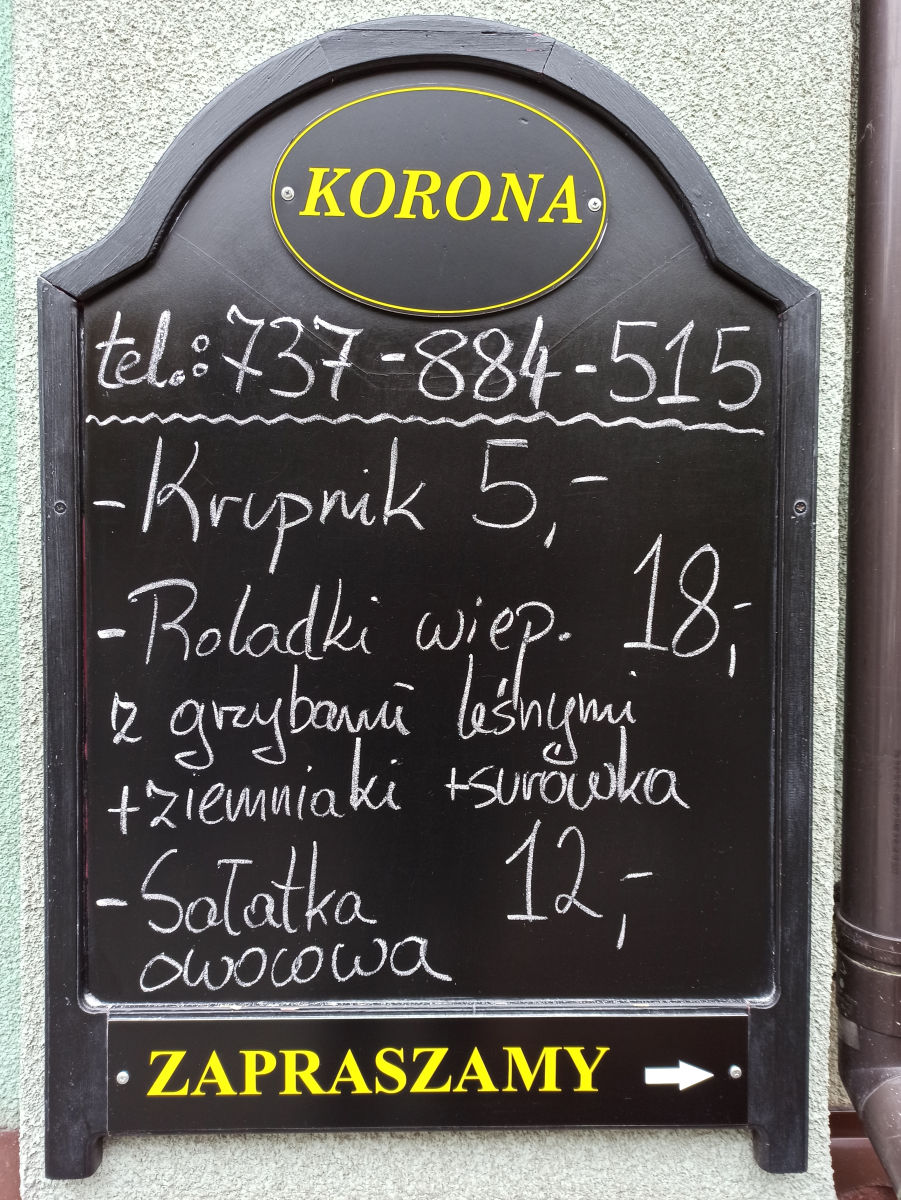 KORONA
tel.: 737-884-515
- Krupnik 5,-
- Roladki wiep. 18,-
z grzybami leśnymi
+ziemniaki +surówka
- Sałatka 12,-
owocowa
ZAPRASZAMY